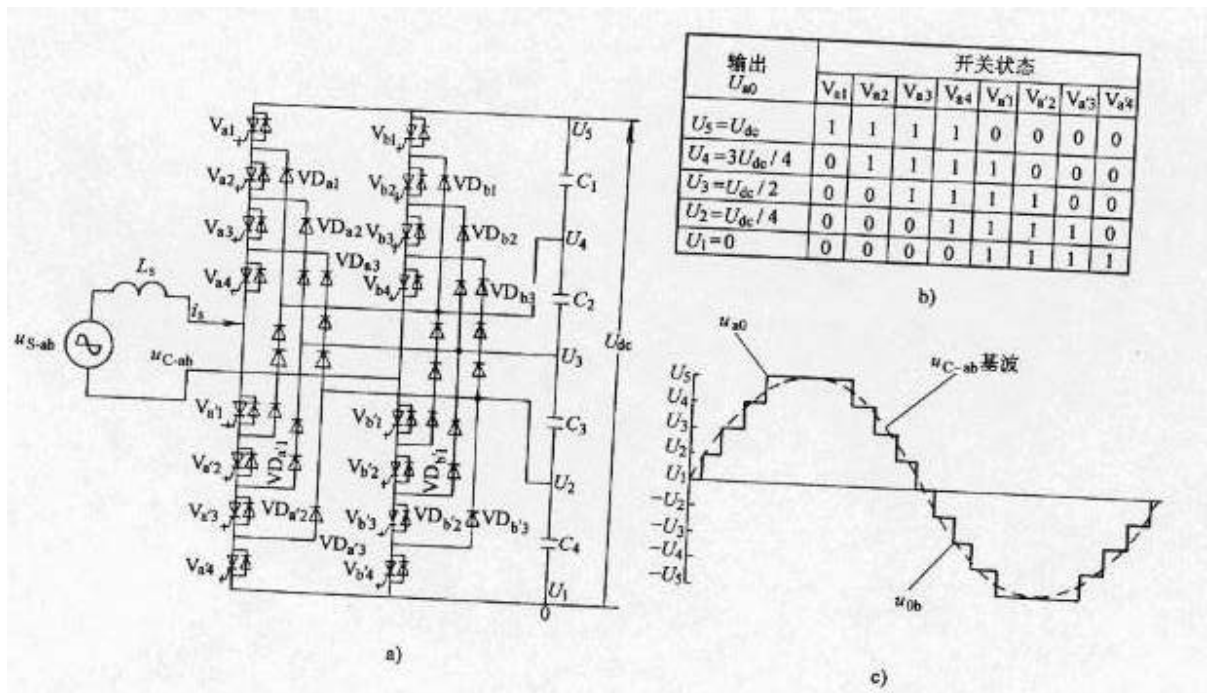 V_a1
V_a2
V_a3
V_a4
V_b1
V_b2
V_b3
V_b4
VD_a1
VD_a2
VD_a3
VD_b1
VD_b2
VD_b3
L_s
i_s
u_S-ab
u_C-ab
V_a'1
V_a'2
V_a'3
V_a'4
V_b'1
V_b'2
V_b'3
V_b'4
VD_a'1
VD_a'2
VD_a'3
VD_b'1
VD_b'2
VD_b'3
U_5
C_1
U_4
C_2
U_dc
U_3
C_3
U_2
C_4
U_1
0
a)
输出 U_a0 开关状态
V_a1 V_a2 V_a3 V_a4 V_a'1 V_a'2 V_a'3 V_a'4
U_5=U_dc 1 1 1 1 0 0 0 0
U_4=3U_dc/4 0 1 1 1 1 0 0 0
U_3=U_dc/2 0 0 1 1 1 1 0 0
U_2=U_dc/4 0 0 0 1 1 1 1 0
U_1=0 0 0 0 0 1 1 1 1
b)
u_a0
u_C-ab基波
U_5
U_4
U_3
U_2
U_1
-U_2
-U_3
-U_4
-U_5
u_0b
c)